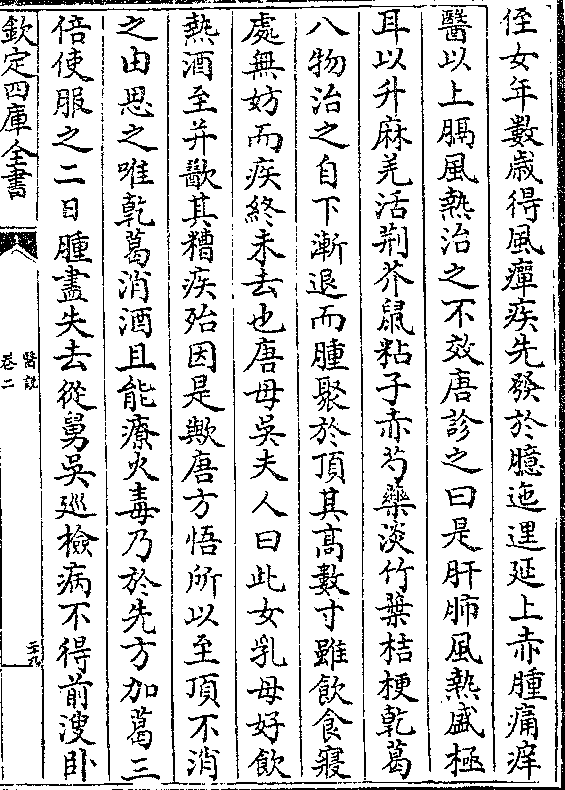 侄女年數歲得風癉疾先發於臆迤邐延上赤腫痛痒
醫以上膈風熱治之不效唐診之曰是肝肺風熱盛極
耳以升麻羌活荆芥鼠粘子赤芍藥淡竹葉桔梗乾葛
八物治之自下漸退而腫聚於頂其高數寸雖飲食寢
處無妨而疾終未去也唐母吳夫人曰此女乳母好飲
熱酒至并歠其糟疾殆因是歟唐方悟所以至頂不消
之由思之唯乾葛消酒且能療火毒乃於先方加葛三
倍使服之二日腫盡失去從舅吳廵檢病不得前溲卧
欽定四庫全書
醫說
卷二
三九